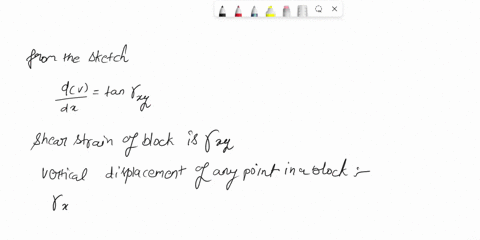 from the sketch
d(v)/dx = tan γxy
Shear strain of block is γxy
Vertical displacement of any point in a block :-
γx